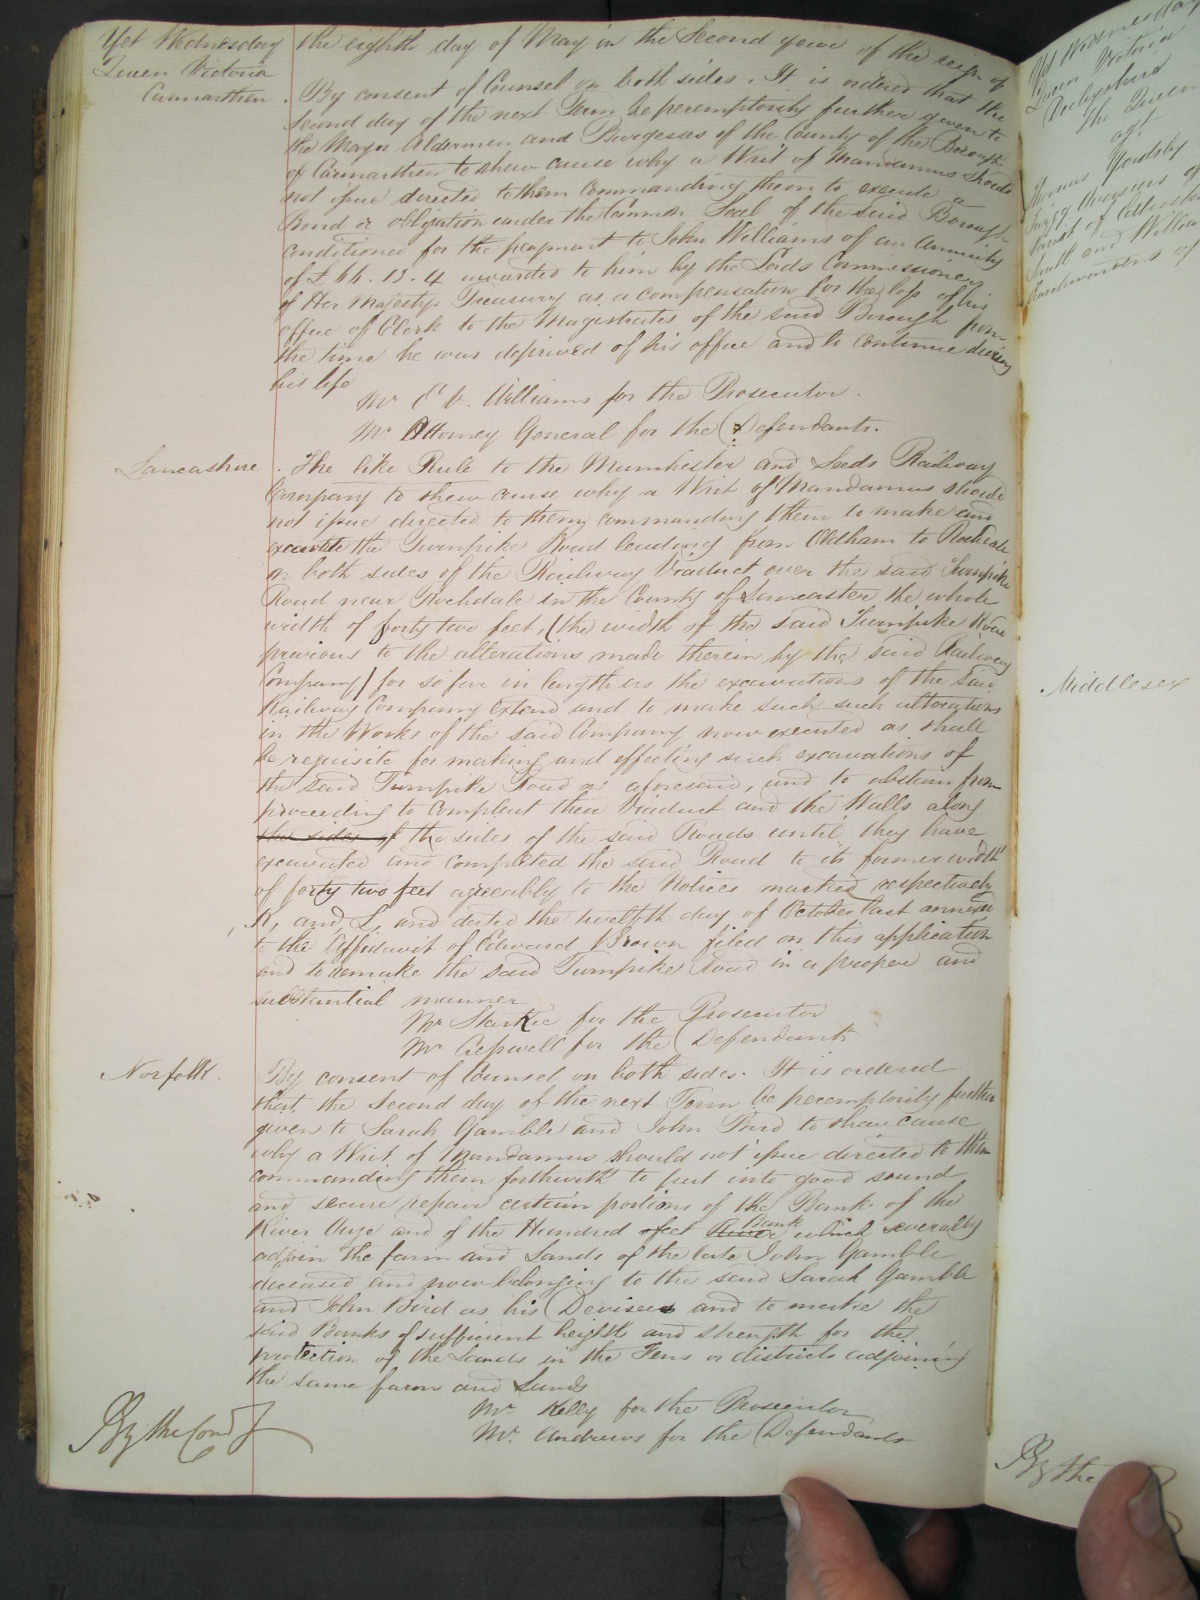 Yet Wednesday the eighth day of May in the Second year of the reign of
Queen Victoria
Carmarthen. By consent of Counsel on both sides. It is ordered that the
second day of the next Term be peremptorily further given to
the Mayor Aldermen and Burgesses of the County of the Borough
of Carmarthen to shew cause why a Writ of Mandamus should
not issue directed to them commanding them to execute a
Bond or obligation under the Common Seal of the said Borough
conditioned for the payment to John Williams of an Annuity
of £ 66. 13. 4 awarded to him by the Lords Commissioners
of Her Majestys Treasury as a compensation for the loss of his
office of Clerk to the Magistrates of the said Borough from
the time he was deprived of his office and to continue during
his life
Mr E V. Williams for the Prosecutor.
Mr Attorney General for the Defendants.
Lancashire. The like Rule to the Manchester and Leeds Railway
Company to shew cause why a Writ of Mandamus should
not issue directed to them commanding them to make and
excavate the Turnpike Road leading from Oldham to Rochdale
on both sides of the Railway Viaduct over the said Turnpike
Road near Rochdale in the County of Lancaster the whole
width of forty two feet, (the width of the said Turnpike Road
previous to the alterations made therein by the said Railway
Company) for so far in length as the excavations of the said
Railway Company extend and to make such such alterations
in the Works of the said Company now executed as shall
be requisite for making and effecting such excavations of
the said Turnpike Road as aforesaid, and to abstain from
proceeding to compleat their Viaduct and the Walls along
the sides of the sides of the said Roads until they have
excavated and completed the said Road to its former width
of forty two feet agreeably to the Notices marked respectively
K, and L, and dated the twelfth day of October last annexed
to the Affidavit of Edward Brown filed on this application
and to remake the said Turnpike Road in a proper and
substantial manner
Mr Starkie for the Prosecutor
Mr Cresswell for the Defendants
Norfolk. By consent of Counsel on both sides. It is ordered
that the second day of the next Term be peremptorily further
given to Sarah Gamble and John Bird to shew cause
why a Writ of Mandamus should not issue directed to them
commanding them forthwith to put into good sound
and secure repair certain portions of the Bank of the
River Ouze and of the Hundred feet River Bank which severally
adjoin the farm and Lands of the late John Gamble
deceased and now belonging to the said Sarah Gamble
and John Bird as his Devisees and to make the
said Banks of sufficient height and strength for the
protection of the Lands in the Fens or districts adjoining
the same farm and Lands
Mr. Kelly for the Prosecutor
Mr. Andrews for the Defendants
By the Court
Yet Wednesday
Queen Victoria
The Queen
agt
Thomas Yardsby
Parish of
and William
Churchwardens of
Middlesex
By the